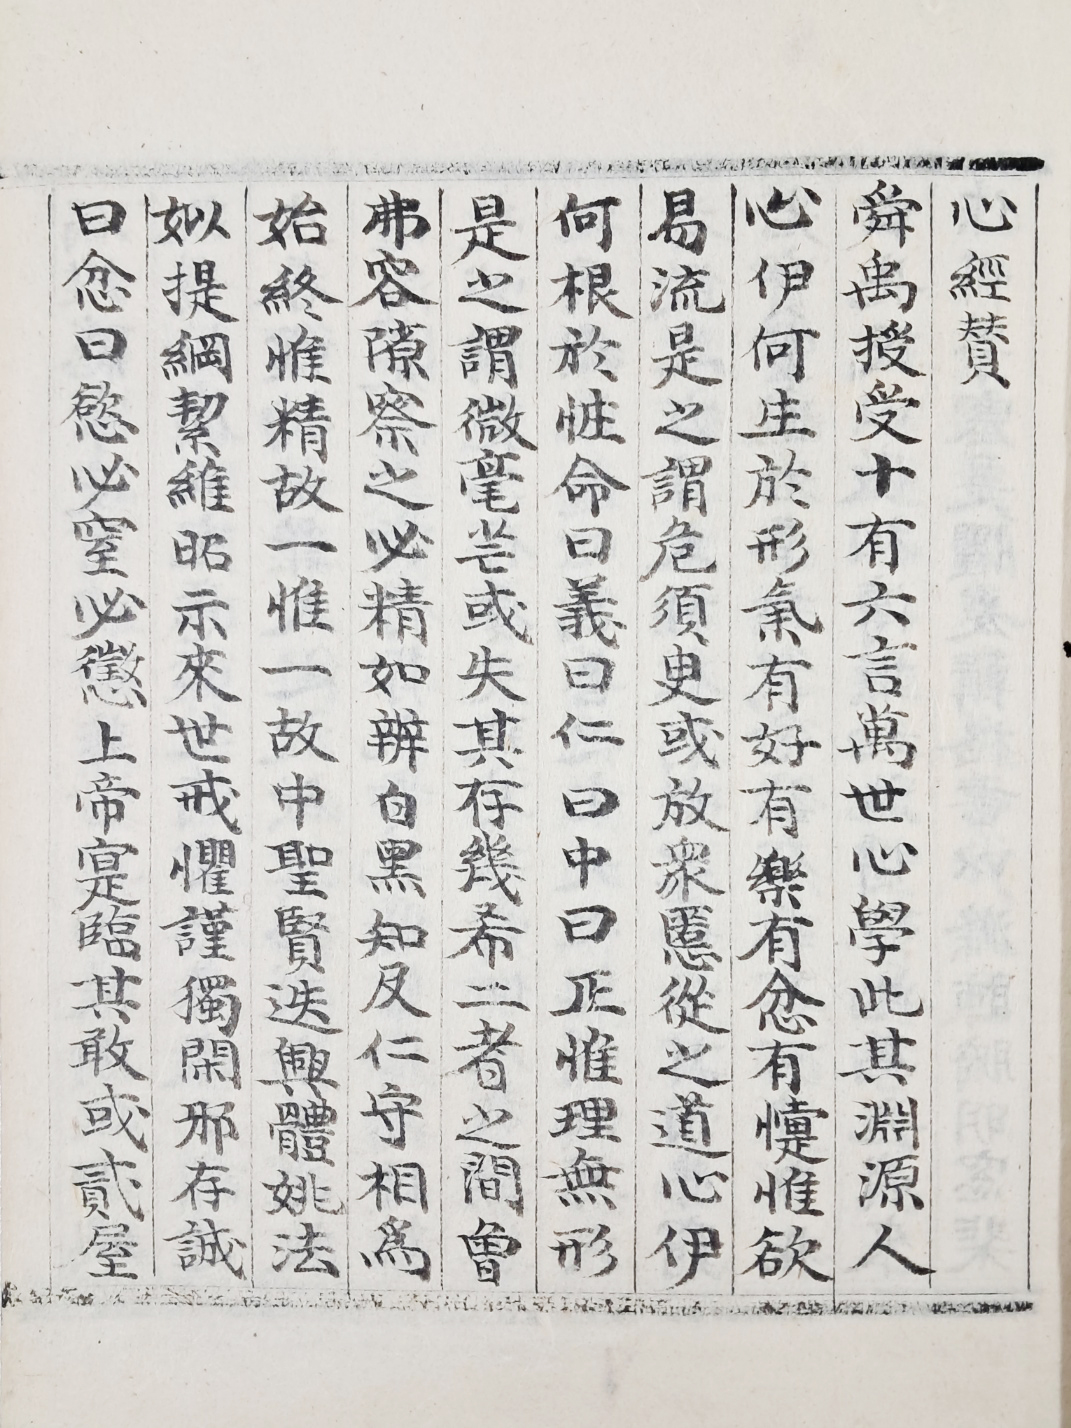 心經賛
舜禹授受十有六言萬世心學此其淵源人
心伊何生於形氣有好有樂有忿有懥惟欲
易流是之謂危須臾或放衆慝從之道心伊
何根於性命曰義曰仁曰中曰正惟理無形
是之謂微毫芒或失其存幾希二者之間曾
弗容隙察之必精如辨白黑知及仁守相爲
始終惟精故一惟一故中聖賢迭興體姚法
姒提綱挈維昭示來世戒懼謹獨閑邪存誠
曰忿曰慾必窒必懲上帝寔臨其敢或貳屋